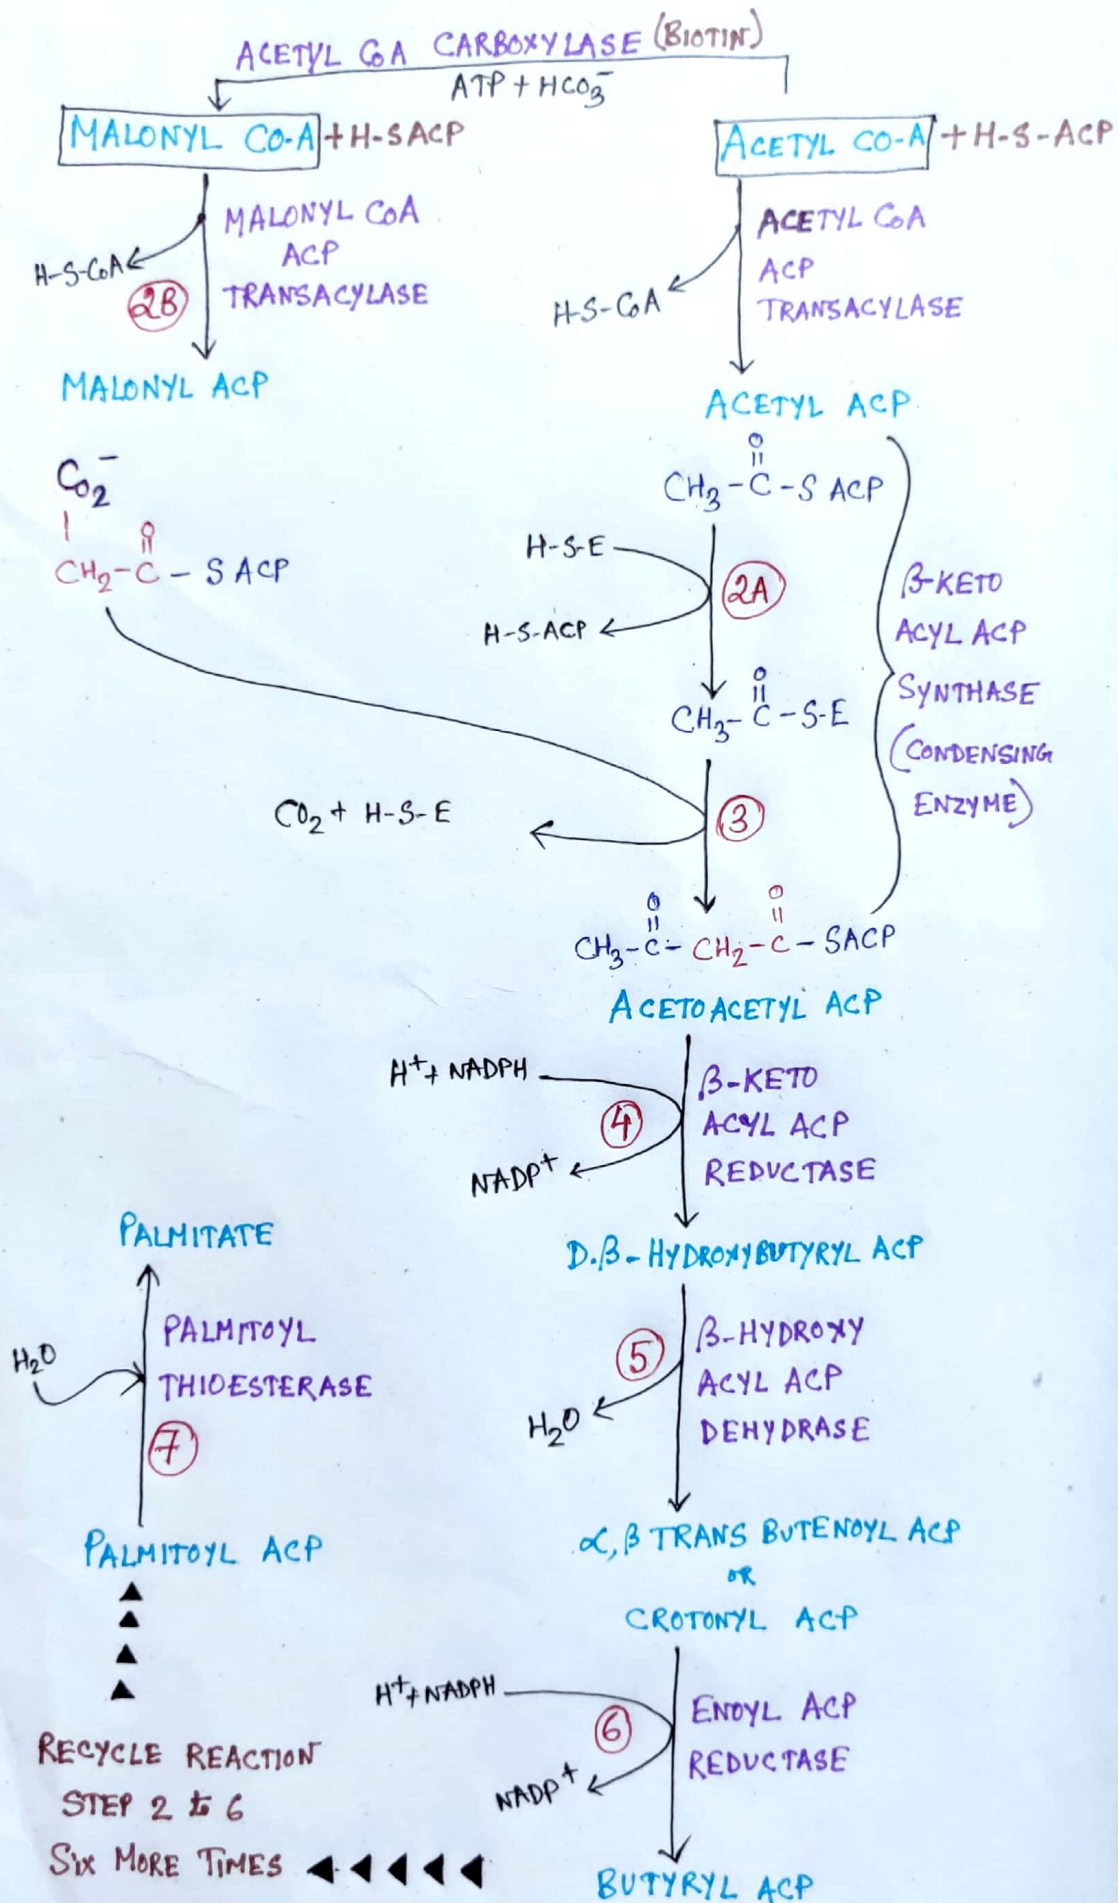 ACETYL CoA CARBOXYLASE (BIOTIN)
ATP + HCO₃⁻
MALONYL CO-A + H-SACP
ACETYL CO-A + H-S-ACP
MALONYL CoA
ACP
TRANSACYLASE
H-S-CoA
2B
MALONYL ACP
ACETYL CoA
ACP
TRANSACYLASE
H-S-CoA
ACETYL ACP
CO₂⁻
O
CH₂-C-SACP
O
CH₃-C-S ACP
H-S-E
2A
H-S-ACP
O
CH₃-C-S-E
β-KETO
ACYL ACP
SYNTHASE
(CONDENSING
ENZYME)
CO₂ + H-S-E
3
O O
CH₃-C-CH₂-C-SACP
ACETOACETYL ACP
H⁺+ NADPH
4
NADP⁺
β-KETO
ACYL ACP
REDUCTASE
D.β-HYDROXYBUTYRYL ACP
5
H₂O
β-HYDROXY
ACYL ACP
DEHYDRASE
α,β TRANS BUTENOYL ACP
OR
CROTONYL ACP
H⁺+NADPH
6
NADP⁺
ENOYL ACP
REDUCTASE
BUTYRYL ACP
RECYCLE REACTION
STEP 2 to 6
SIX MORE TIMES
PALMITOYL ACP
7
H₂O
PALMITOYL
THIOESTERASE
PALMITATE